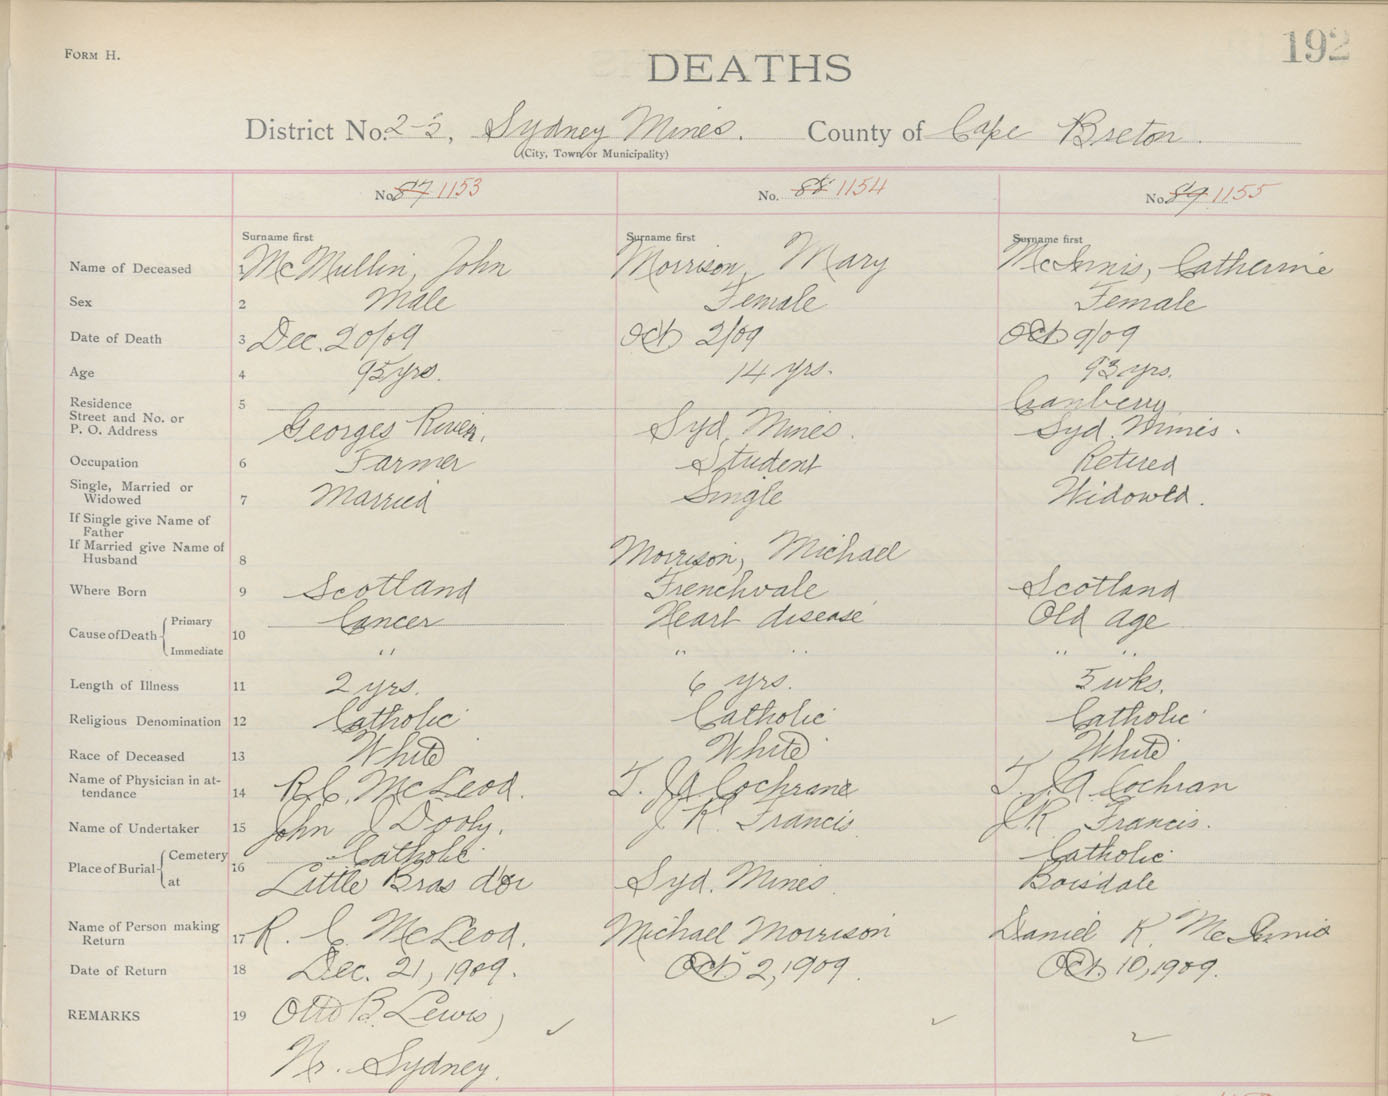 FORM H.
192
DEATHS
District No. 2-3, Sydney Mines. County of Cape Breton.
(City, Town or Municipality)
No. 87 1153 No. 88 1154 No. 89 1155
Surname first Surname first Surname first
Name of Deceased 1 McMullin, John Morrison, Mary McInnis, Catherine
Sex 2 Male Female Female
Date of Death 3 Dec. 20/09 Oct 2/09 Oct 9/09
Age 4 95 yrs. 14 yrs. 93 yrs.
Residence 5 Cranberry
Street and No. or
P. O. Address Georges River, Syd. Mines. Syd. Mines.
Occupation 6 Farmer Student Retired
Single, Married or
Widowed 7 Married Single Widowed.
If Single give Name of
Father
If Married give Name of
Husband 8 Morrison, Michael
Where Born 9 Scotland Frenchvale Scotland
Cause of Death Primary 10 Cancer Heart disease Old age
Immediate " " " " "
Length of Illness 11 2 yrs. 6 yrs. 5 wks.
Religious Denomination 12 Catholic Catholic Catholic
Race of Deceased 13 White White White
Name of Physician in at-
tendance 14 R. C. McLeod. T. J. A. Cochrane T. J. A. Cochran
Name of Undertaker 15 John J Dooly. J K Francis J. R. Francis.
Place of Burial Cemetery 16 Catholic Catholic
at Little Bras d'or Syd. Mines. Boisdale
Name of Person making
Return 17 R. C. McLeod. Michael Morrison Daniel K. McInnis
Date of Return 18 Dec. 21, 1909. Oct. 2, 1909. Oct. 10, 1909.
REMARKS 19 Otto B. Lewis,
Nr. Sydney.